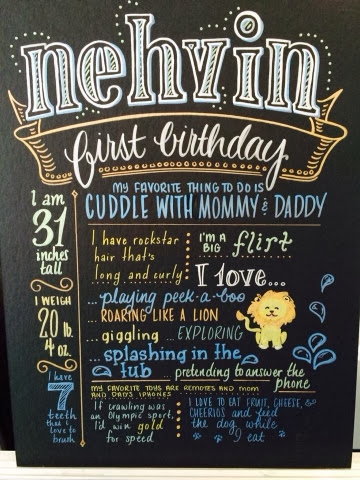 nehvin
first birthday
I am
31
inches
tall
I WEIGH
20 lb.
4 oz.
I have
7
teeth
that I
love to
brush
MY FAVORITE THING TO DO IS
CUDDLE WITH MOMMY & DADDY
I have rockstar
hair that's
long and curly
I'M A
BIG flirt
I love...
...playing peek-a-boo
ROARING LIKE A LION
...giggling ...EXPLORING
...splashing in the
tub ...pretending to answer the
phone
MY FAVORITE TOYS ARE REMOTES AND MOM
AND DAD'S IPHONES
If crawling was
an Olympic sport,
I'd win gold
for speed
I LOVE TO EAT FRUIT, CHEESE, &
CHEERIOS and feed
the dog while
I eat